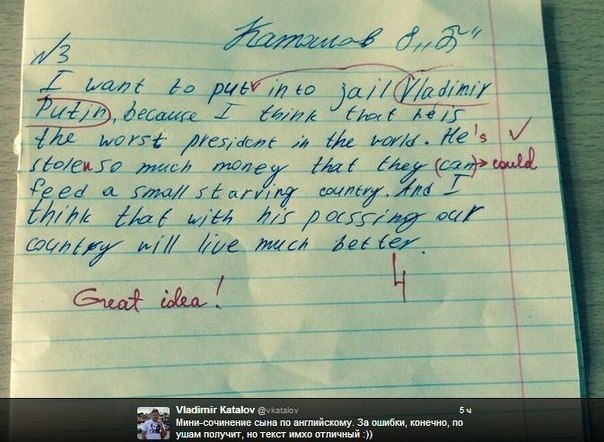 Каталов 8 „Б"
№3
I want to put into jail Vladimir
Putin, because I think that he is
the worst president in the world. He's
stolen so much money that they (can) → could
feed a small starving country. And I
think that with his passing our
country will live much better.
Great idea! 4
Vladimir Katalov @vkatalov 5 ч
Мини-сочинение сына по английскому. За ошибки, конечно, по
ушам получит, но текст имхо отличный :))